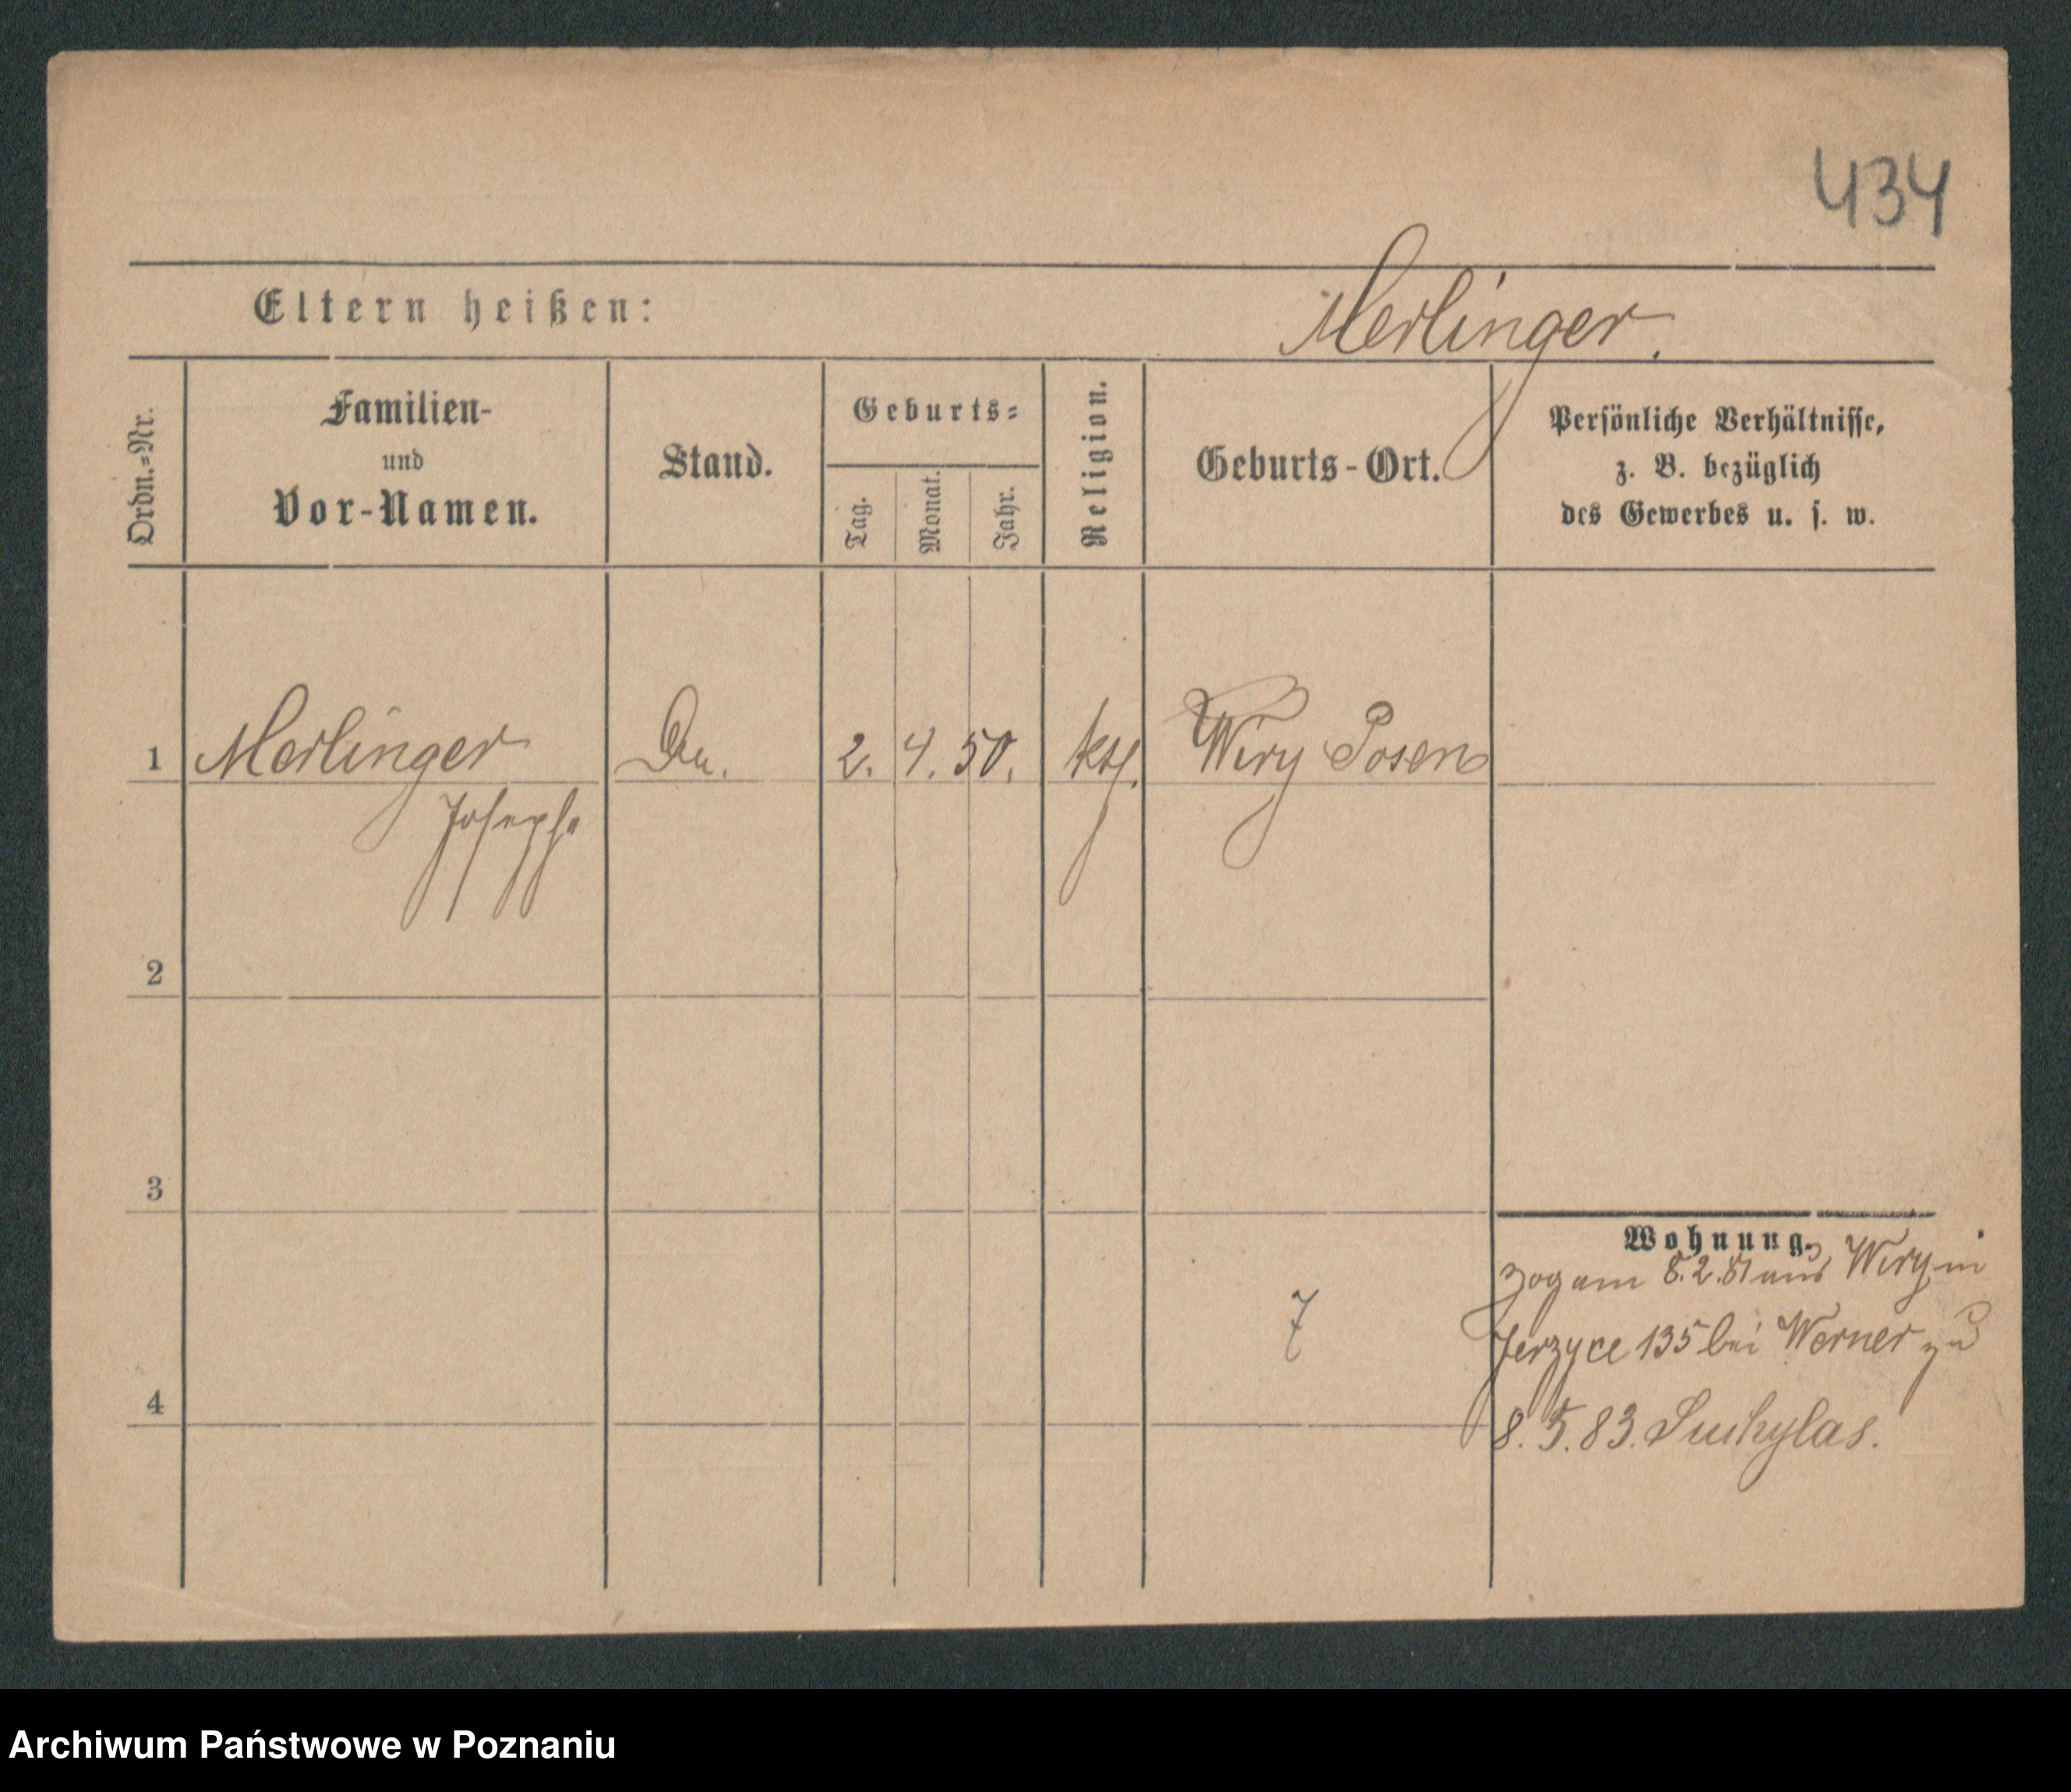 434
Eltern heißen:
Merlinger.
Ordn.=Nr.
Familien-
und
Vor-Namen.
Stand.
Geburts=
Tag.
Monat.
Jahr.
Religion.
Geburts-Ort.
Persönliche Verhältnisse,
z. B. bezüglich
des Gewerbes u. s. w.
1 Merlinger 2. 4. 50. Wiry Posen
Joseph
2
3
Wohnung.
zog am 8.2.81 aus Wiry in
7
Jerzyce 135 bei Werner zu
4
8. 5. 83. Suchylas.
Archiwum Państwowe w Poznaniu